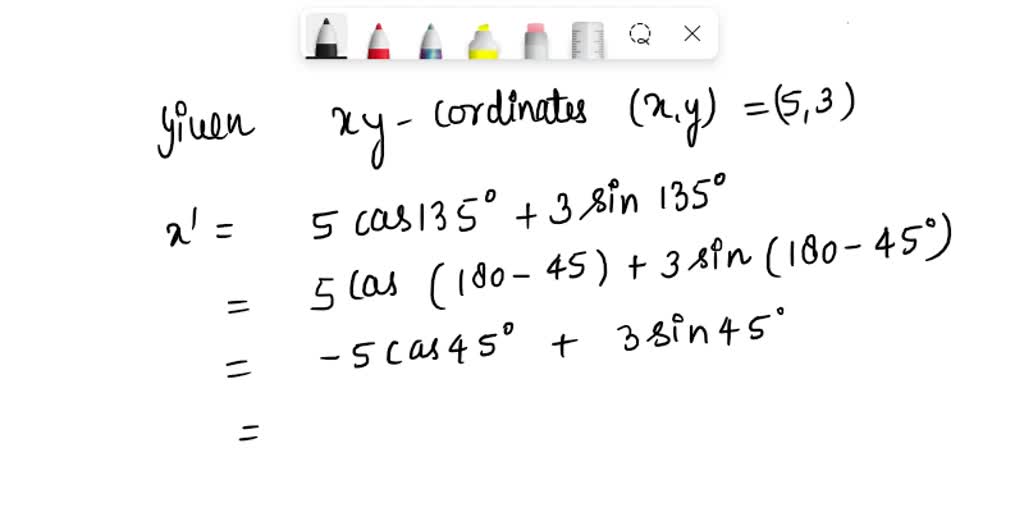 Given xy - cordinates (x,y) = (5,3)
x' = 5 cos135° + 3 sin 135°
= 5 cos (180 - 45) + 3 sin (180 - 45°)
= -5 cos 45° + 3 sin 45°
=